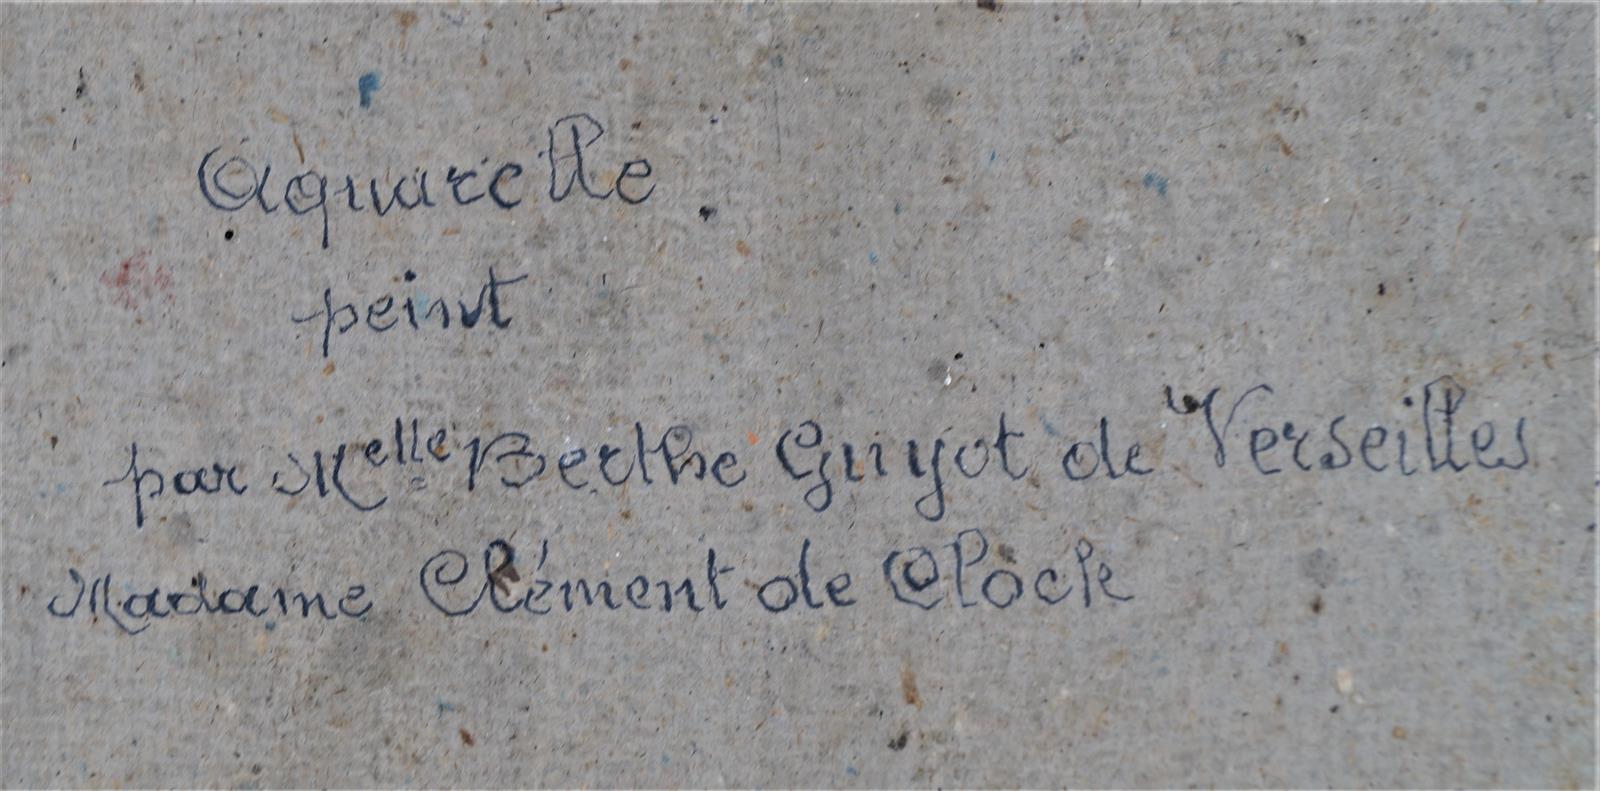 Aquarelle
peint
par Melle Berthe Guyot de Verseilles
Madame Clément de Clock